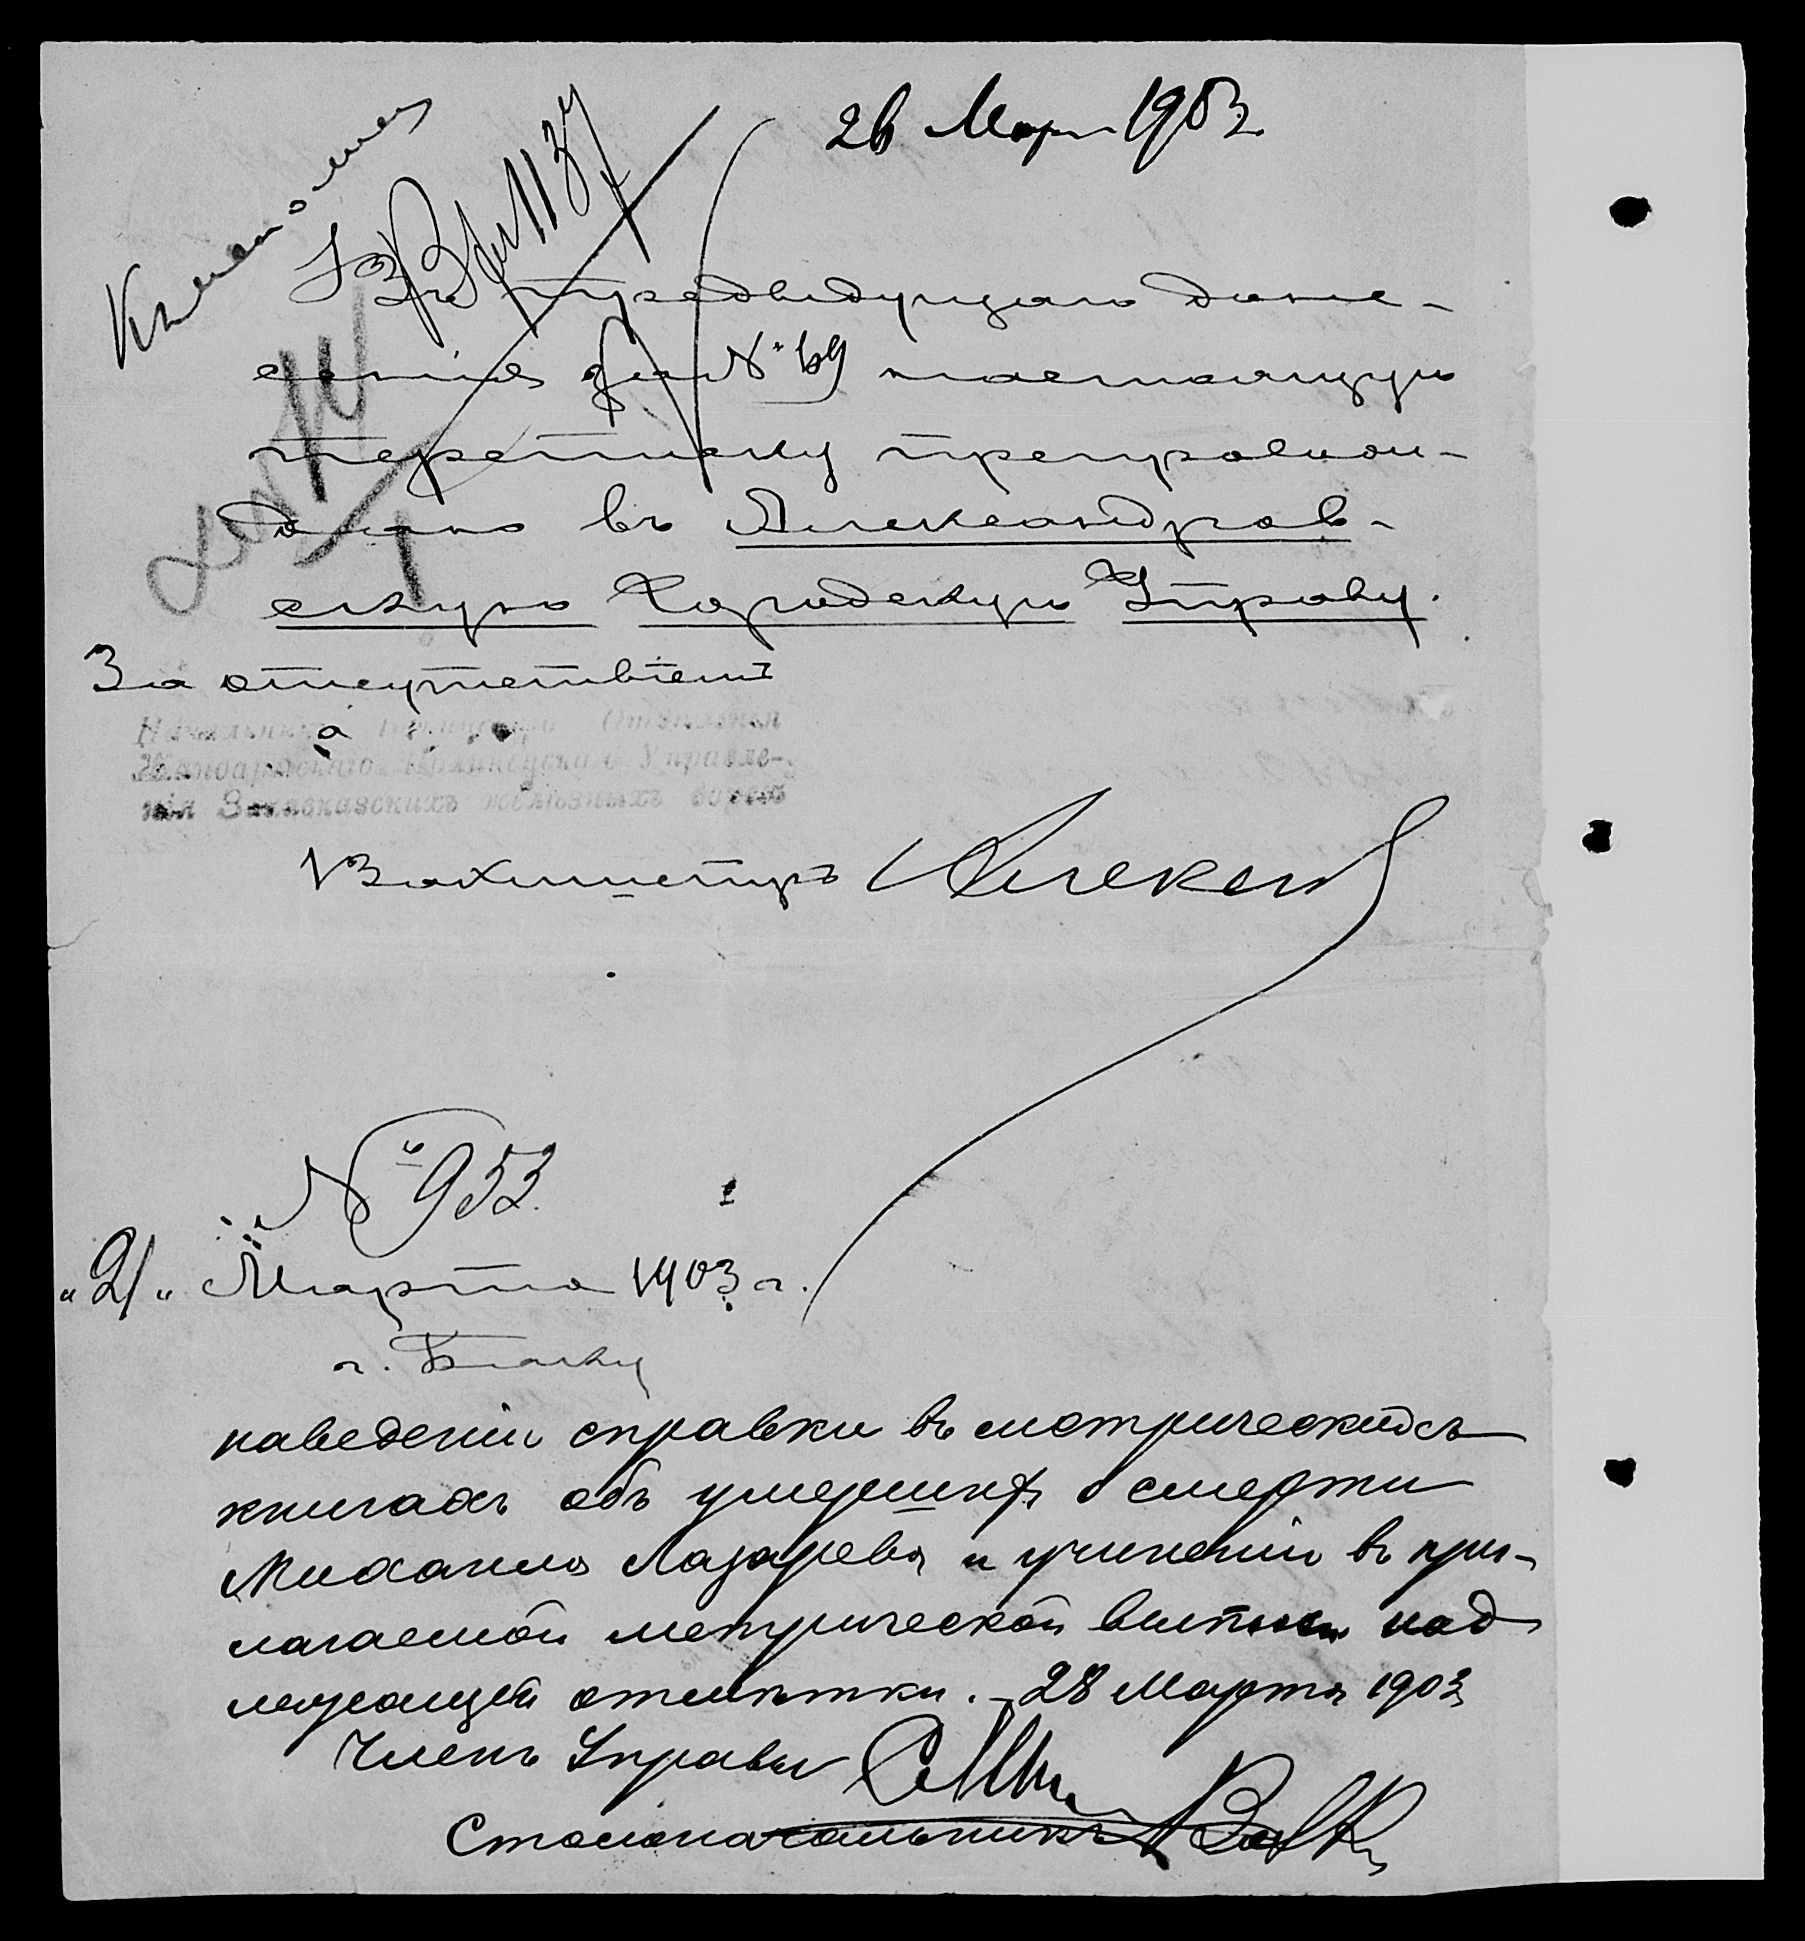 26 Мар 1903
Въ предыдущаго доне-
сенія за № 69 настоящую
переписку препровож-
даю въ Александров-
скую Городскую Управу.
За отсутствіемъ
Начальника Бакинскаго Отдѣленія
Жандармскаго Полицейскаго Управле-
нія Закавказскихъ желѣзныхъ дорогъ
Вахмистръ
№ 953.
"21" Марта 1903 г.
г. Баку
наведеніи справки въ метрическихъ
книгахъ объ умершихъ о смерти
Михаила Лазарева и учиненіи въ при-
лагаемой метрической выписи над
лежащей отмѣтки. - 28 Марта 1903
Членъ Управы
Столоначальникъ